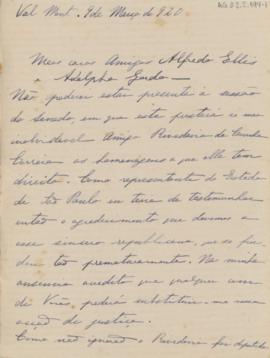 Val Mont. 9 de Março de 920
Meus caros Amigos Alfredo Ellis
e Adolpho Gordo
Não poderei estar presente á sessão
do Senado, em que este prestará ao meu
inolvidavel Amigo Rivadavia da Cunha
Correia as homenagens a que elle tem
direito. Como representante do Estado
de São Paulo eu teria de testimunhar
então o agradecimento que devemos a
esse sincero republicano, que se foi
tão prematuramente. Na minha
ausencia acredito que qualquer um
de Vmcês, poderá substituir-me nessa
de justiça.
Como não ignoraes o Rivadavia foi deputado